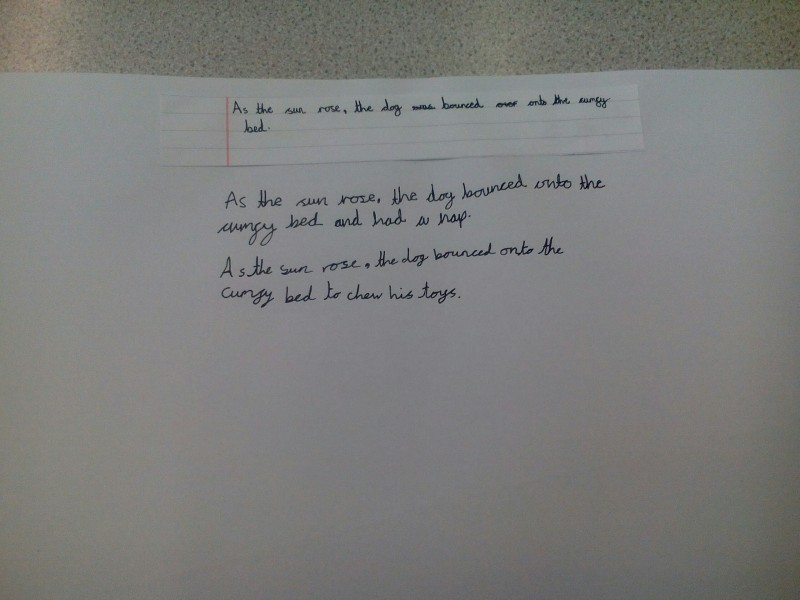 As the sun rose, the dog was bounced over onto the cumfy
bed.
As the sun rose, the dog bounced onto the
cumfy bed and had a nap.
As the sun rose, the dog bounced onto the
cumfy bed to chew his toys.